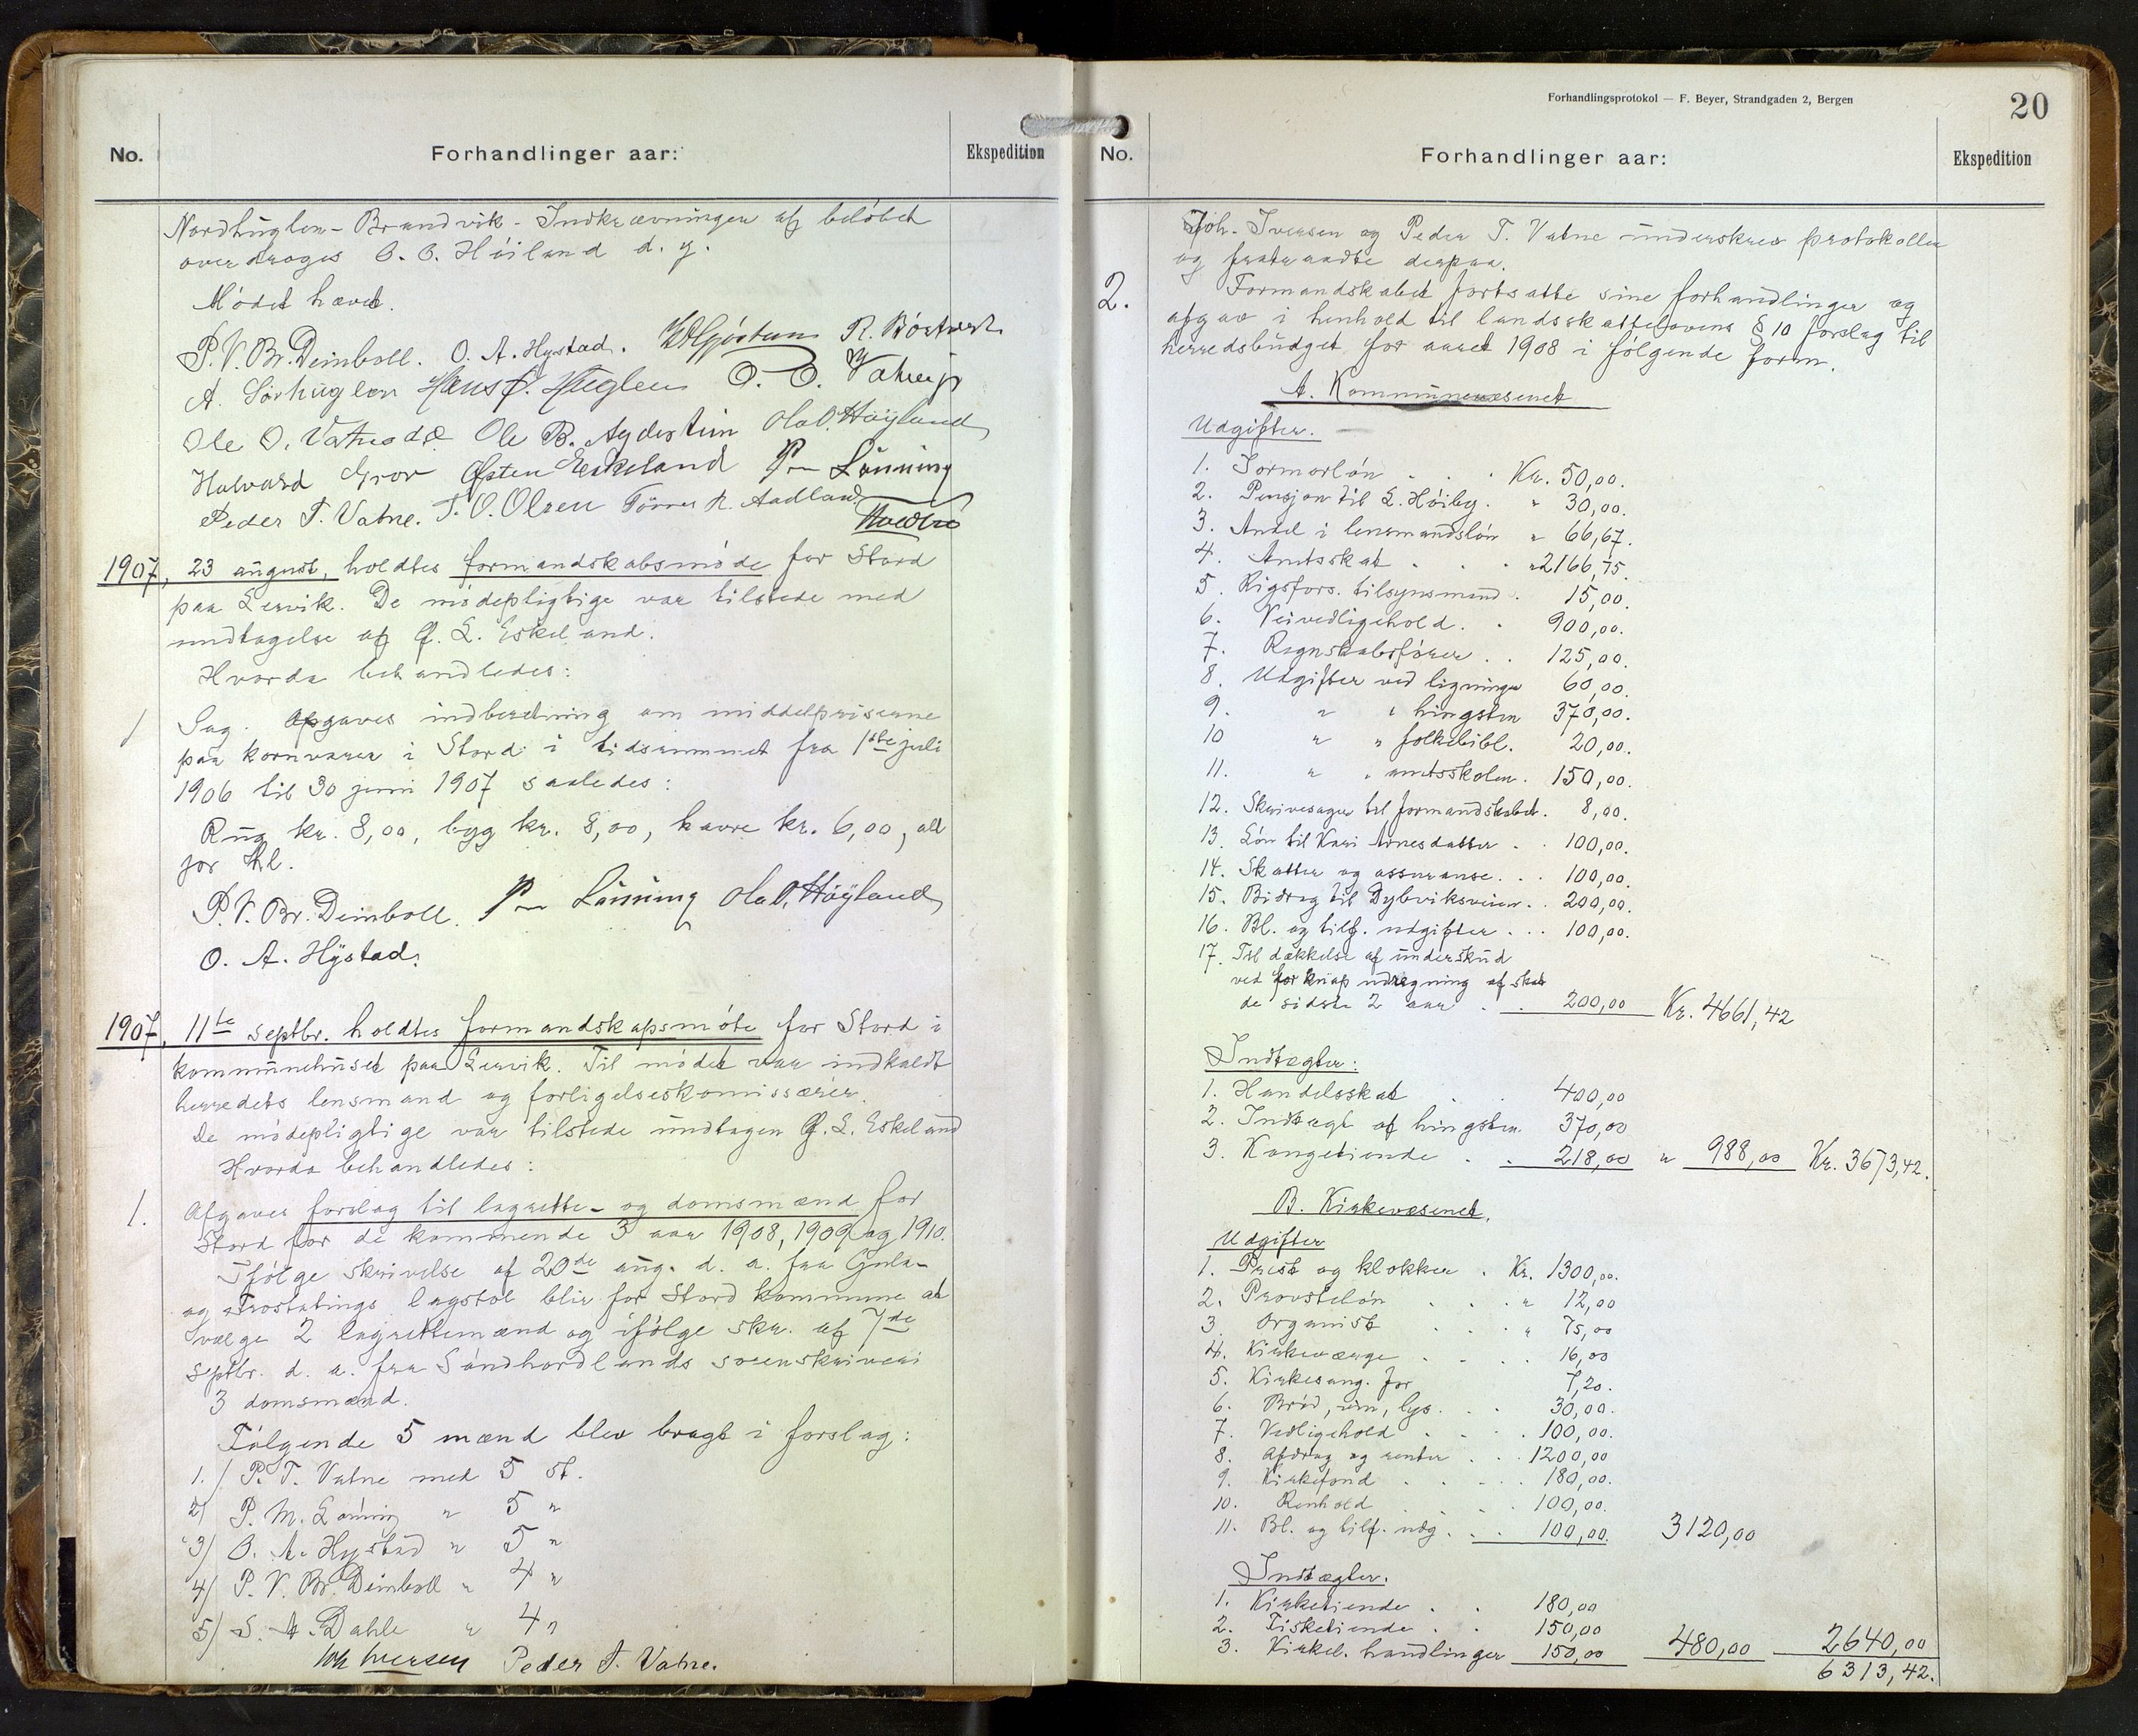 No.
Forhandlinger aar:
Ekspedition
Nordhuglen - Brandvik - Indkrævningen af beløbet
overdroges O. O. Höiland d. y.
Mödet hævet.
P. V. Br. Deinboll. O. A. Hystad. R. Börtveit
A. Sörhuglen Hans J. Huglen O. O. Vatne jr
Ole O. Vatne d.e Ole B. Agdestein Ola O. Høyland
Halvard Grov Østen Eskeland P M Lönning
Peder T. Vatne. T. O. Olsen Törres R. Aadland
1907, 23 august, holdtes formandskabsmöde for Stord
paa Lervik. De mödepligtige var tilstede med
undtagelse af Ø. L. Eskeland.
Hvorda behandledes:
1 Sag. Afgaves indberetning om middelpriserne
paa kornvarer i Stord i tidsrummet fra 1ste juli
1906 til 30 juni 1907 saaledes:
Rug kr. 8,00, byg kr. 8,00, havre kr. 6,00, alt
for hl.
P. V. Br. Deinboll. P M Lönning Ola O. Høyland
O. A. Hystad.
1907, 11te septbr. holdtes formandskapsmöte for Stord i
kommunehuset paa Lervik. Til mödet var indkaldt
herredets lensmand og forligelseskomissærer.
De mödepligtige var tilstede undtagen Ø. L. Eskeland
Hvorda behandledes:
1. Afgaves forslag til lagrette- og domsmænd for
Stord for de kommende 3 aar 1908, 1909 og 1910.
Ifölge skrivelse af 20de aug. d. a. fra Gula-
og Frostatings lagstol blir for Stord kommune at
vælge 2 lagrettemænd og ifölge skr. af 7de
septbr. d. a. fra Söndhordlands sorenskriveri
3 domsmænd.
Fölgende 5 mænd blev bragt i forslag:
1./ P. T. Vatne med 5 st.
2/ P. M. Lönning " 5 "
3/ O. A. Hystad " 5 "
4/ P. V. Br. Deinboll " 4 "
5/ S. A. Dahle " 4 "
Joh Iversen Peder T. Vatne.
Forhandlingsprotokol — F. Beyer, Strandgaden 2, Bergen
20
No.
Forhandlinger aar:
Ekspedition
Joh. Iversen og Peder T. Vatne underskrev protokollen
og fratraadte derpaa.
2. Formandskabet fortsatte sine forhandlinger og
afgav i henhold til landsskattelovens § 10 forslag til
herredsbudget for aaret 1908 i fölgende form.
A. Kommunevæsenet
Udgifter.
1. Jormorlön . . . Kr. 50,00.
2. Pensjon til L. Höiby. " 30,00.
3. Andel i lensmandslön " 66,67.
4. Amtsskat . . . " 2166,75.
5. Rigsfors. tilsynsmand . 15,00.
6. Veivedligehold. . 900,00.
7. Regnskabsförer . . 125,00.
8. Udgifter ved ligningen 60,00.
9. " " hingsten 370,00.
10 " " folkebibl. 20,00.
11. " " amtsskolen. 150,00.
12. Skrivesager til formandskabet. 8,00.
13. Lön til Kari Arnesdatter . . 100,00.
14. Skatter og assuranse. . . 100,00.
15. Bidrag til Dybviksveien. . 200,00.
16. Bl. og tilf. udgifter . . . 100,00.
17. Til dækkelse af underskud
ved for knap udregning af skat
de sidste 2 aar . . 200,00 Kr. 4661,42
Indtægter:
1. Handelsskat . . 400,00
2. Indtægt af hingsten. 370,00
3. Kongetiende . . 218,00 " 988,00 Kr. 3673,42.
B. Kirkevæsenet.
Udgifter
1. Prest og klokker . Kr. 1300,00.
2. Provstelön . . . " 12,00
3. Organist . . . " 75,00
4. Kirkeværge . . . . 16,00
5. Kirkesang. for 7,20.
6. Bröd, vin, lys. . . 30,00.
7. Vedligehold . . . . 100,00.
8. Afdrag og renter . . . 1200,00
9. Kirkefond . . . . . 180,00.
10. Renhold . . . . 100,00.
11. Bl. og tilf. udg. . . . 100,00. 3120,00
Indtægter.
1. Kirketiende . . 180,00
2. Fisketiende . . 150,00
3. Kirkel. handlinger 150,00 480,00 2640,00
6313,42.